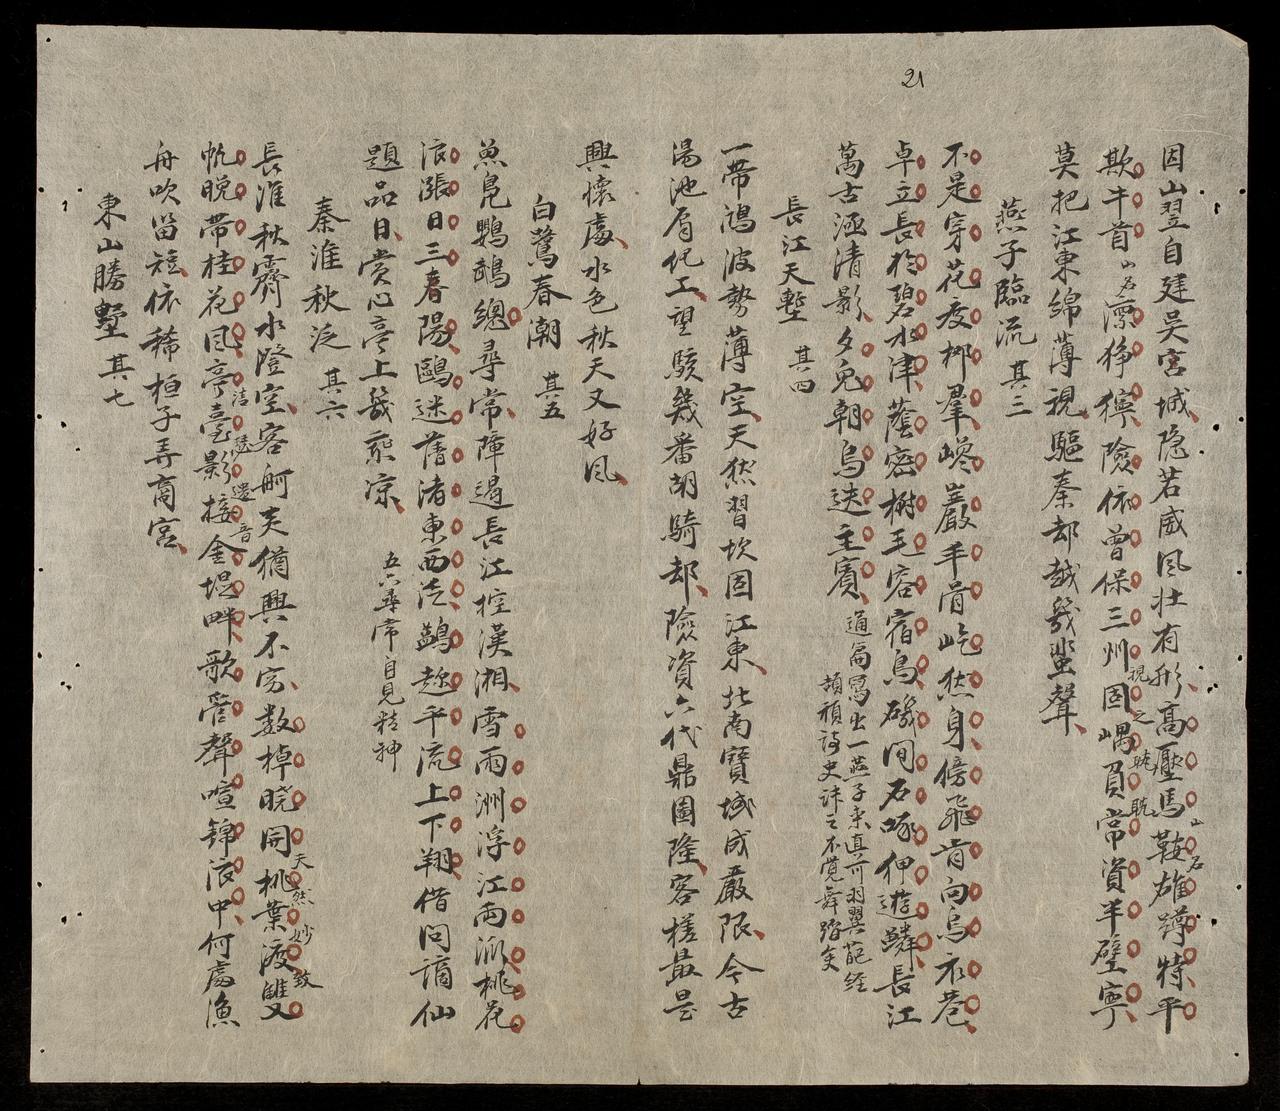 21
因山翌自建吳宮城隐若威风壯有形高壓馬鞍雄蹲特平
欺牛首山名漂狰獰險依曾保三州固嵎負常資半壁寧
莫把江東綿薄視驅秦却越幾蜚聲
燕子臨流 其三
不是穿花度柳羣嶐巖手骨屹然身傍飛肯向烏衣巷
卓立長於碧水津蔭密樹毛容宿鳥磯间石啄狎遊鱗長江
萬古涵清影夕兔朝烏迭主賓
通篇寫出一燕子来真可羽翼葩經
頡頏詩史詠之不覚舞蹈矣
長江天塹 其四
一帶鴻波勢薄空天然習坎固江東北南寳域成嚴限今古
湯池屑化工望駭幾番胡騎却險資六代鼎圖隆客槎最是
興懷處水色秋天又好风
白鷺春潮 其五
魚鳧鸚鵡總尋常障遏長江控漢湘雪雨洲浮江兩派桃花
浪漲日三春陽鷗迷舊渚東西泛鷀趂平流上下翔借问謫仙
題品日賞心亭上幾炎凉
五六尋常自見精神
秦淮秋泛 其六
長淮秋霽水澄空客舸美猶興不穷数棹晓同桃葉渡雙
天然妙致
帆晚帶桂花风亭臺影接金堤畔歌管聲喧錦浪中何處漁
遺音
舟吹笛短依稀桓子弄商宮
東山勝墅 其七